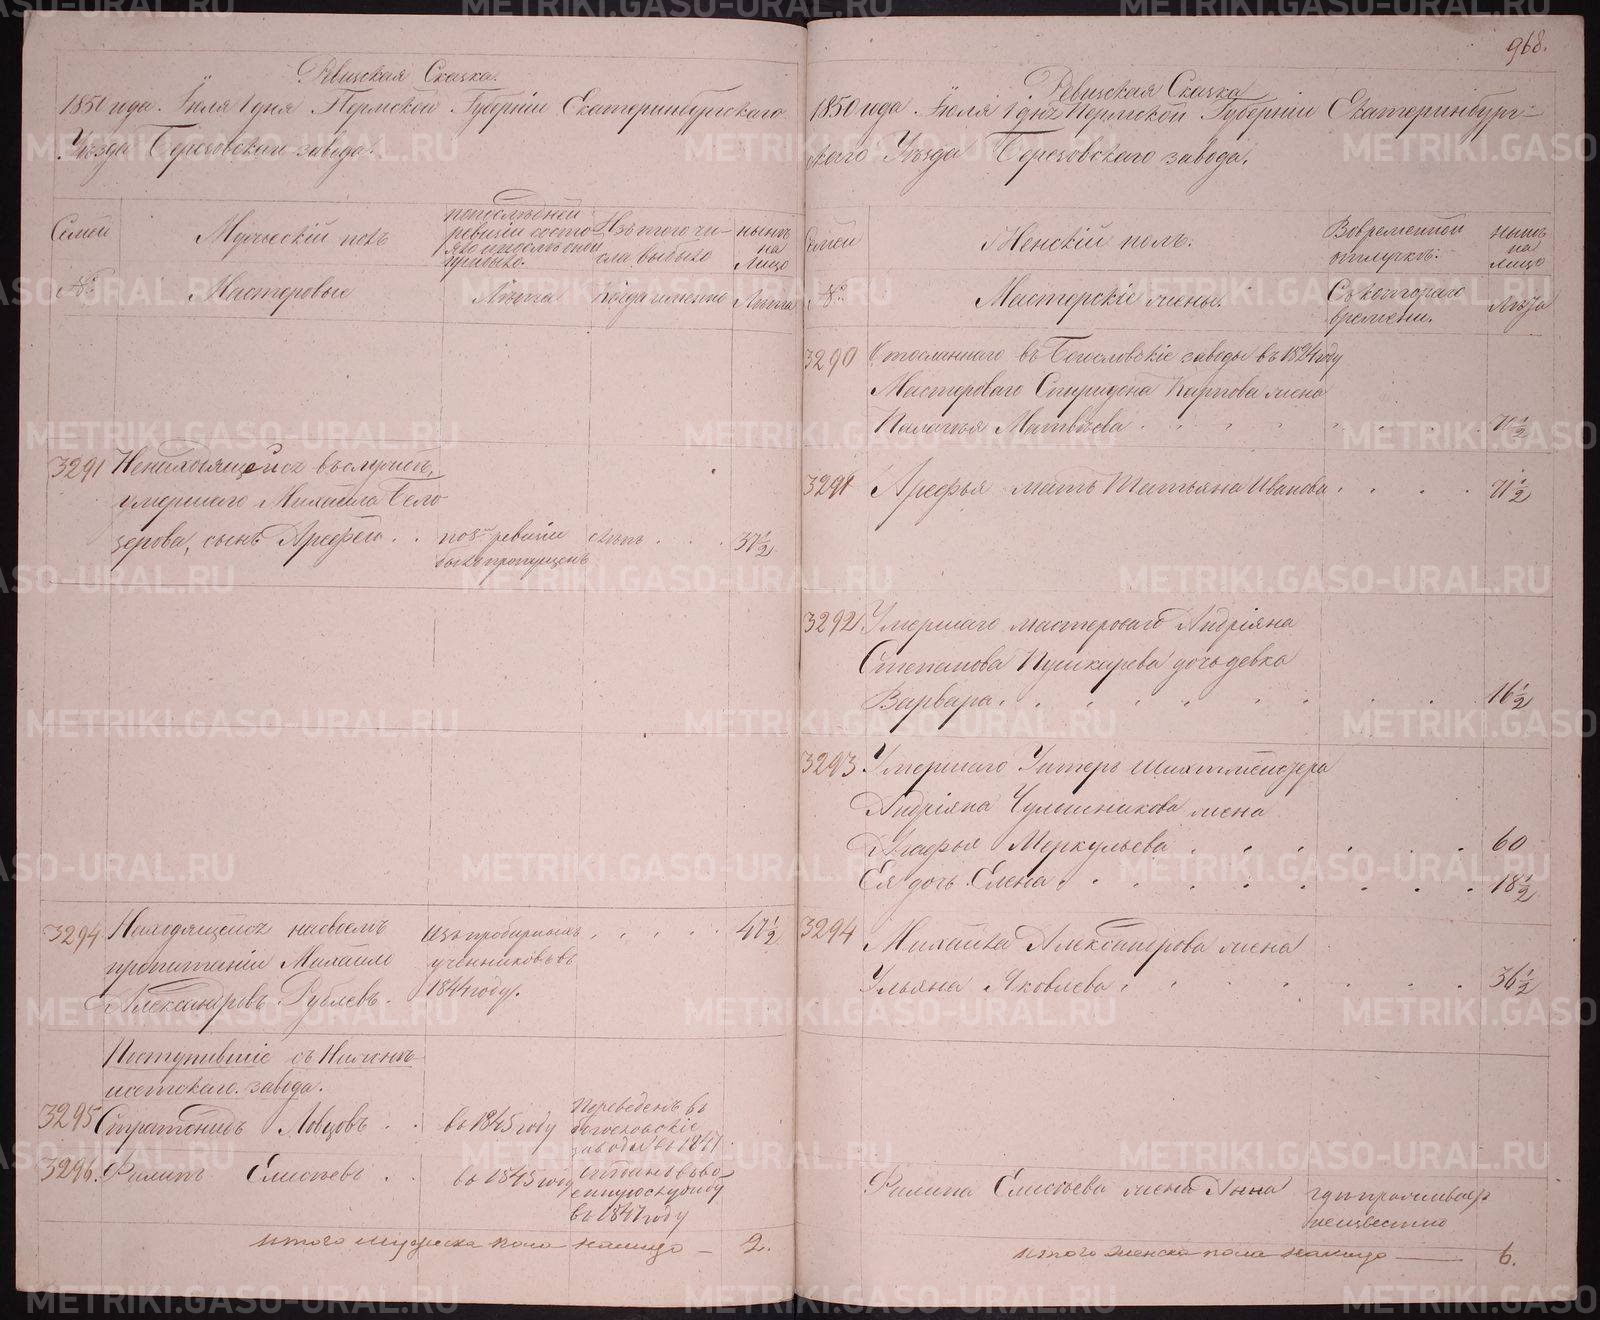 968.
Ревизская Сказка.
1850 года. Іюля 1 дня Пермской Губерніи Екатеринбургскаго
Уѣзда Березовскаго завода.
Семей
Мужескій полъ
последней
ревизіи состо-
яло и послѣ оной
прибыло.
Изъ того чи-
сла выбыло
нынѣ
на
Лицо
№
Мастеровые
Лѣта
когда именно
Лѣта
3291 Ненаходящейся въ службѣ,
умершаго Михаила Бело
зерова, сынъ Арефей . .
по 8й ревизіи
былъ пропущенъ
37 1/2
3294 Находящейся на своемъ
пропитаніи Михаило
Александровъ Рублевъ.
изъ пробирныхъ
учениковъ въ
1844 году.
47 1/2
Поступившіе съ Нижне
исетскаго завода.
3295 Стратонидъ Ловцовъ . .
въ 1845 году
Переведенъ въ
Богословскіе
заводы въ 1847
3296. Филипъ Елисѣевъ . .
въ 1845 году
въ 1847 году
итого мужеска пола налицо — 2.
Ревизская Сказка
1850 года. Іюля 1 дня Пермской Губерніи Екатеринбург-
скаго Уѣзда Березовскаго завода.
Семей
Женскій полъ.
Во временной
отлучкѣ.
нынѣ
на
лицо
№
Мастерскіе жены.
Съ котораго
времени.
Лѣта
3290 Отосланнаго въ Богословскіе заводы въ 1824 году
Мастероваго Спиридона Карпова жена
Палагѣя Матвѣева
70 1/2
3291 Арефья мать Татьяна Иванова
71 1/2
3292 Умершаго мастероваго Андріяна
Степанова Пушкарева дочь девка
Варвара
16 1/2
3293 Умершаго Унтеръ Шихтмейстера
Андріяна Чулошникова жена
Агафья Меркульева
60
Ея дочь Елена
18 1/2
3294 Михаила Александрова жена
Ульяна Яковлева
36 1/2
Филипа Елисѣева жена Анна
гдѣ проживаетъ
неизвестно
итого женска пола налицо — 6.
METRIKI.GASO-URAL.RU